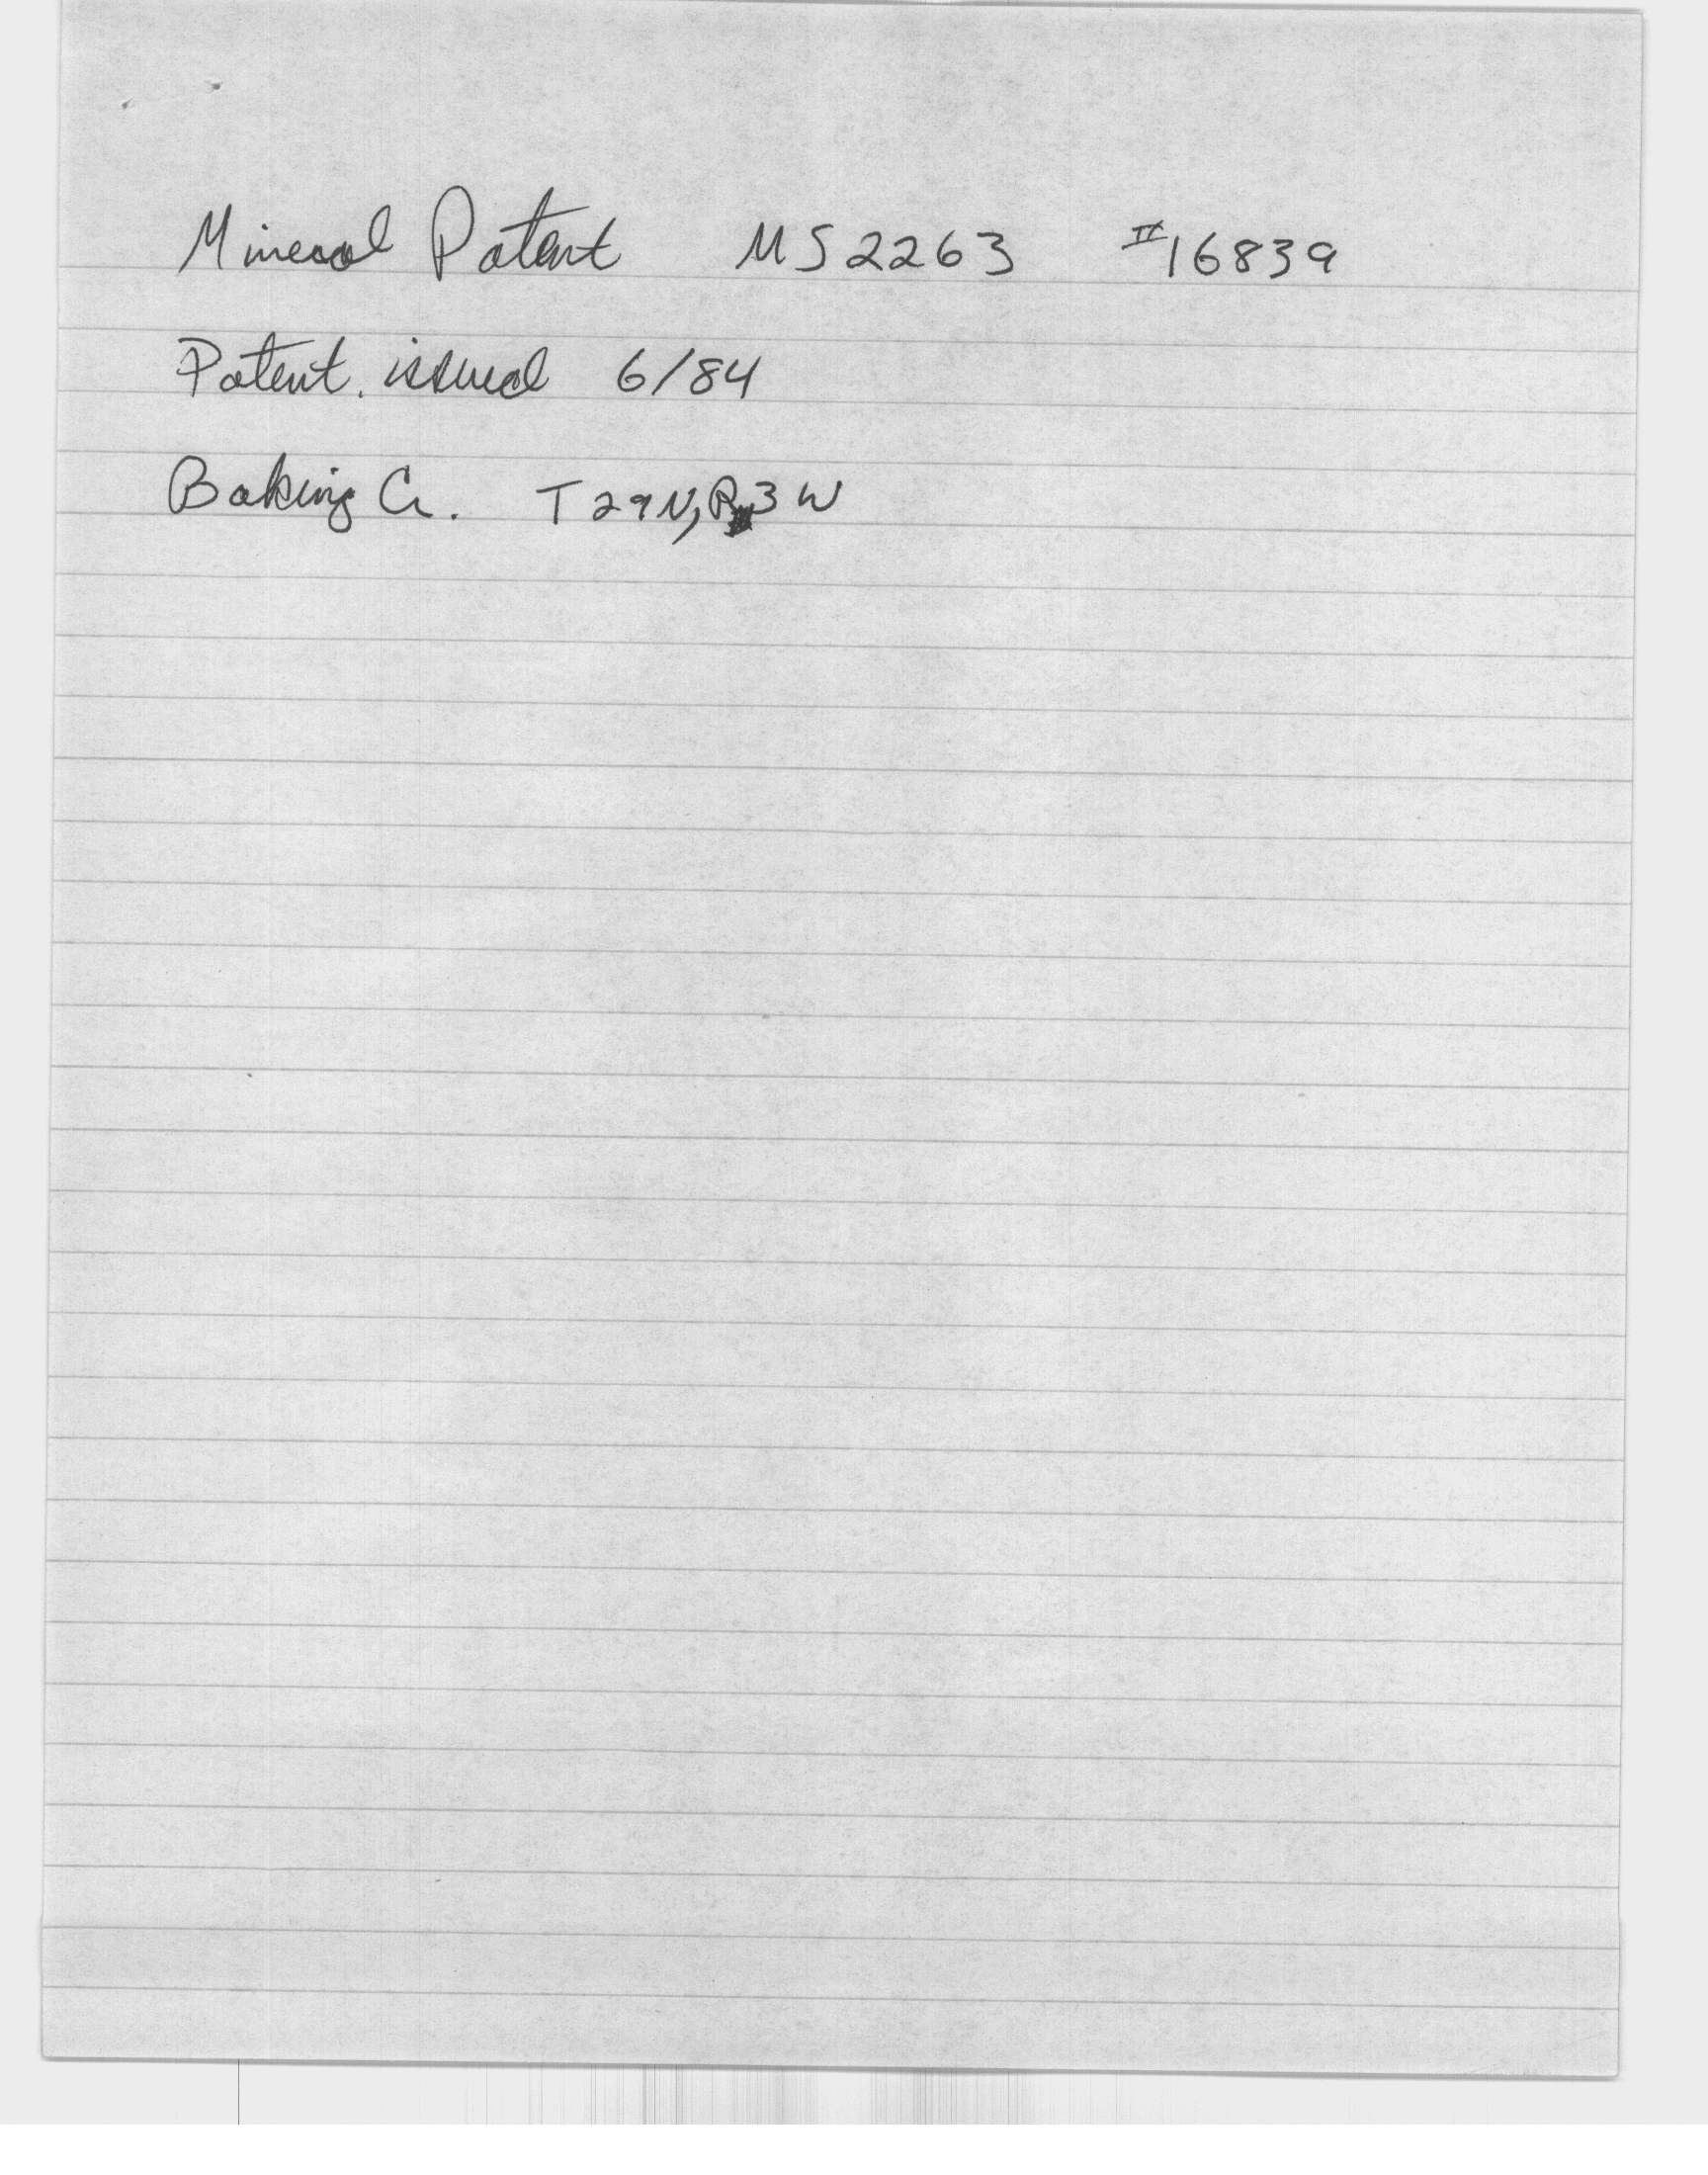 Mineral Patent MS2263 #16839
Patent issued 6/84
Baking Cr. T29N, R3W